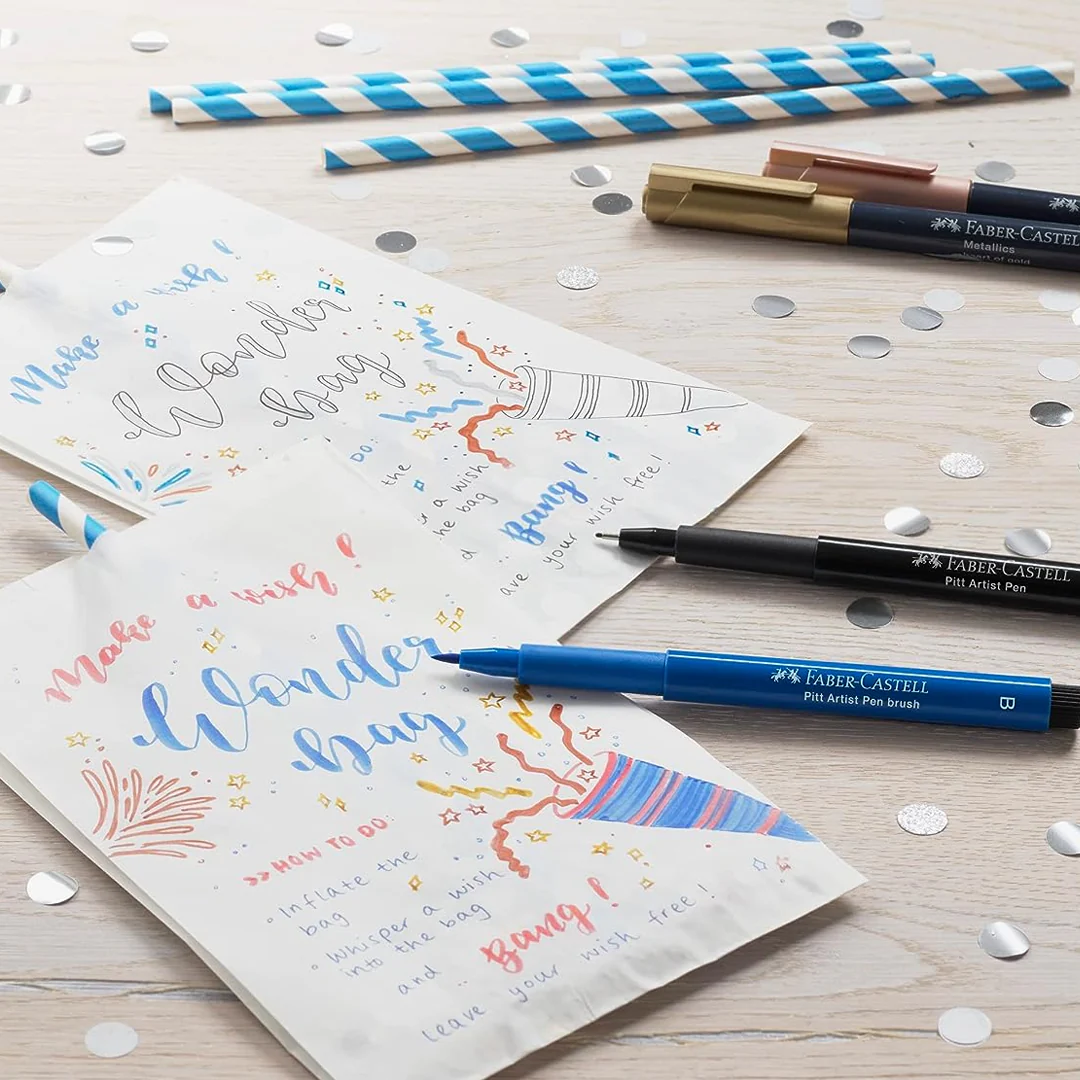 FABER-CASTELL
FABER-CASTELL
Metallics
heart of gold
Make a wish!
Wonder
bag
DO:
the
a wish
he bag
Bang!
ave your wish free!
FABER-CASTELL
Pitt Artist Pen
FABER-CASTELL
Pitt Artist Pen brush
B
Make a wish!
Wonder
bag
>>HOW TO DO:
• Inflate the
bag
• Whisper a wish
into the bag
and ..
Bang!
leave your wish free!